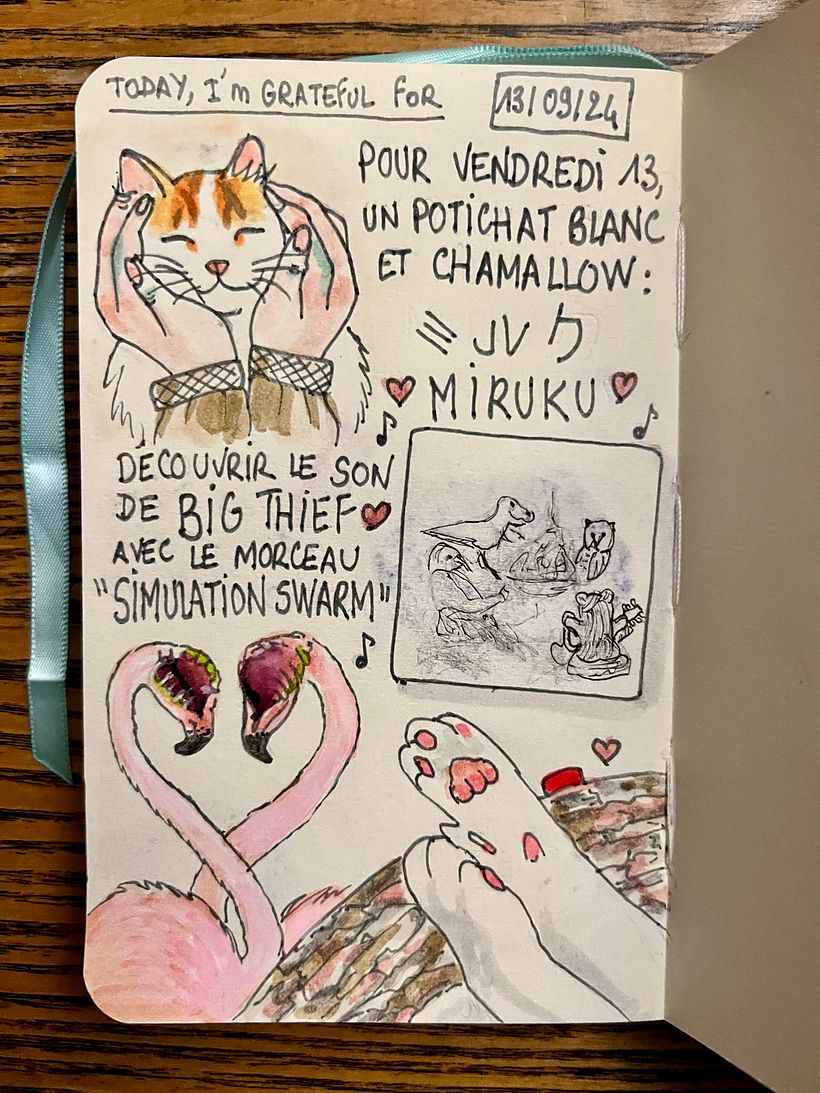 TODAY, I'm GRATEFUL FOR
13/09/24
POUR VENDREDI 13,
UN POTICHAT BLANC
ET CHAMALLOW :
ミルク
MIRUKU
DÉCOUVRIR LE SON
DE BIG THIEF
AVEC LE MORCEAU
"SIMULATION SWARM"